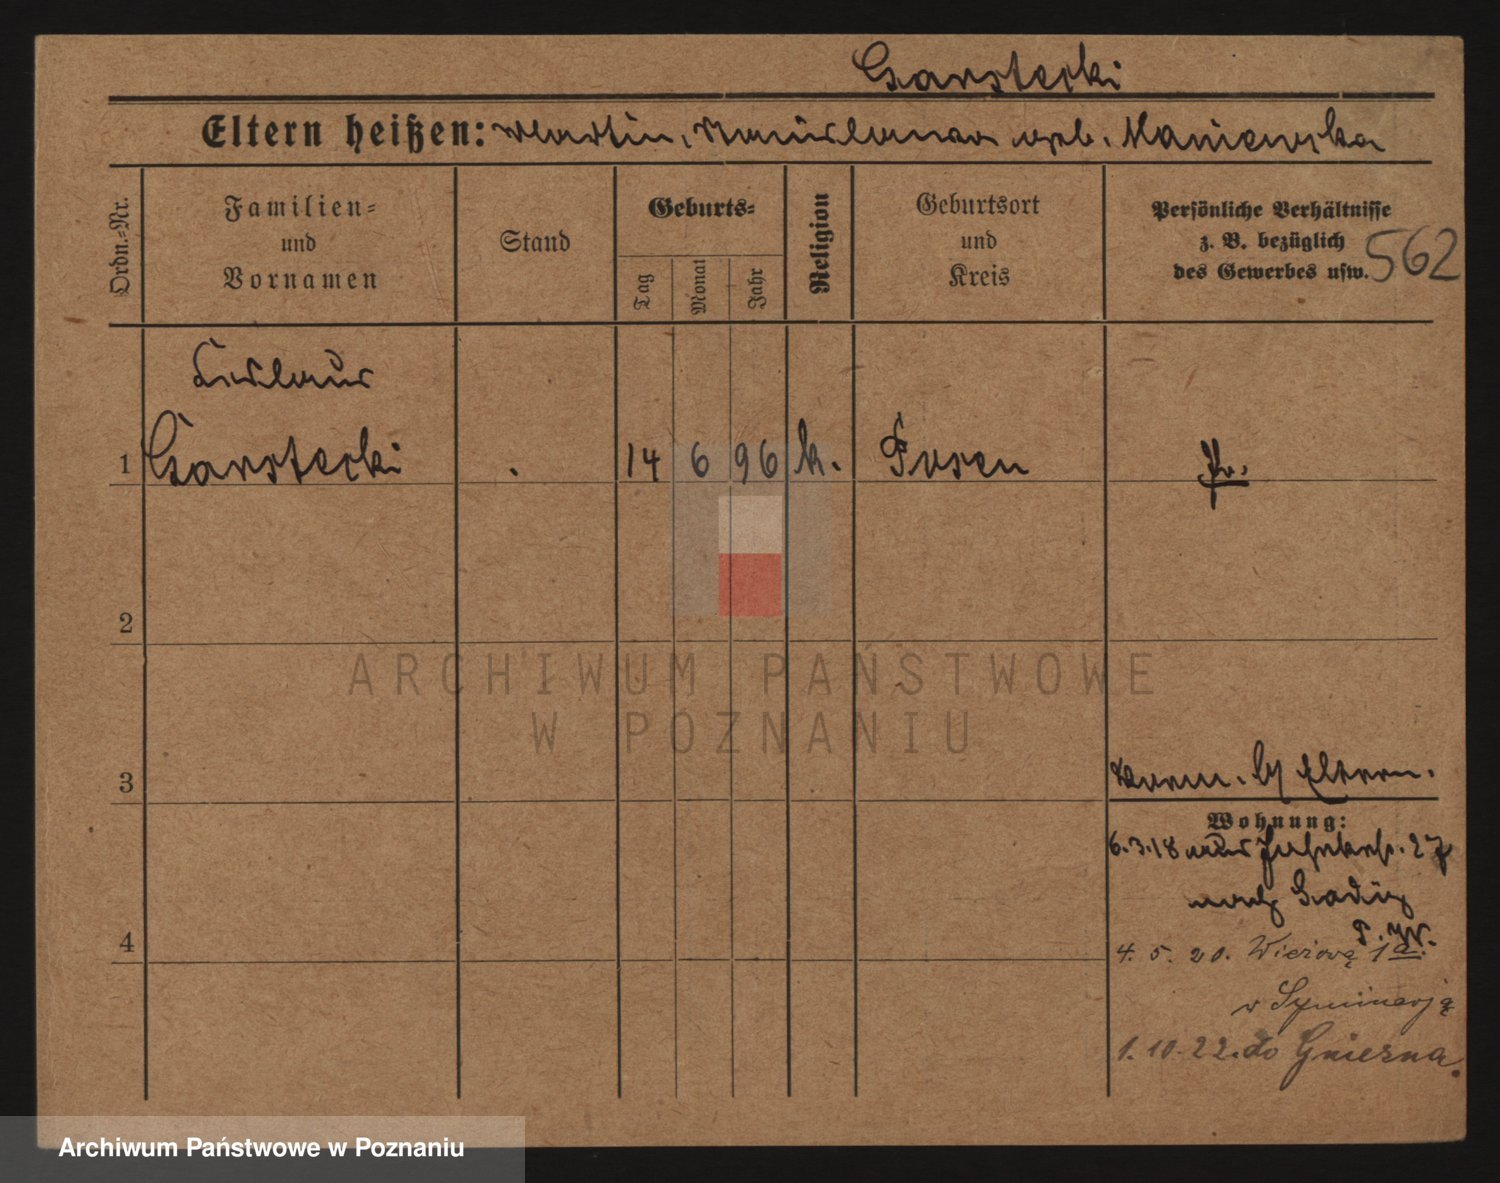 Garstecki
Eltern heißen: Martin, Stanislawa geb. Maniewska
Ordn.-Nr.
Familien-
und
Vornamen
Stand
Geburts-
Tag
Monat
Jahr
Religion
Geburtsort
und
Kreis
Persönliche Verhältnisse
z. B. bezüglich
des Gewerbes usw.
562
1
Garstecki
14 6 96 k. Posen
Pr.
2
ARCHIWUM PAŃSTWOWE
W POZNANIU
3
Eltern.
Wohnung:
6.3.18 27
nach
4
4. 5. 20. Wieżowa 1a.
w Syminarją
1. 10. 22. do Gniezna.
Archiwum Państwowe w Poznaniu